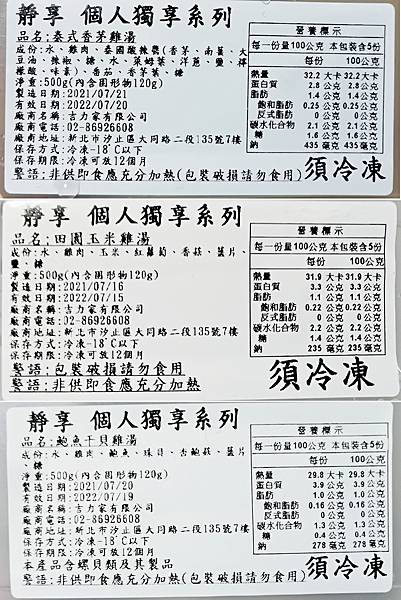 靜享 個人獨享系列
品名:泰式香茅雞湯
成份:水、雞肉、泰國酸辣醬(香茅、南薑、大
豆油、辣椒、糖、水、萊姆葉、洋蔥、鹽、檸
檬酸、味素)、番茄、香茅葉、糖
淨重:500g(內含固形物120g)
製造日期:2021/07/21
有效日期:2022/07/20
廠商名稱:吉力家有限公司
廠商電話:02-86926608
廠商地址:新北市汐止區大同路二段135號7樓
保存方式:冷凍-18℃以下
保存期限:冷凍可放12個月
警語:非供即食應充分加熱(包裝破損請勿食用)
營養標示
每一份量100公克 本包裝含5份
每份 100公克
熱量 32.2 大卡 32.2 大卡
蛋白質 2.8 公克 2.8 公克
脂肪 1.4 公克 1.4 公克
飽和脂肪 0.25 公克 0.25 公克
反式脂肪 0 公克 0 公克
碳水化合物 2.1 公克 2.1 公克
糖 1.6 公克 1.6 公克
鈉 435 毫克 435 毫克
須冷凍
靜享 個人獨享系列
品名:田園玉米雞湯
成份:水、雞肉、玉米、紅蘿蔔、香菇、薑片、
鹽、糖
淨重:500g(內含固形物120g)
製造日期:2021/07/16
有效日期:2022/07/15
廠商名稱:吉力家有限公司
廠商電話:02-86926608
廠商地址:新北市汐止區大同路二段135號7樓
保存方式:冷凍-18℃以下
保存期限:冷凍可放12個月
警語:包裝破損請勿食用
警語:非供即食應充分加熱
營養標示
每一份量100公克 本包裝含5份
每份 100公克
熱量 31.9 大卡 31.9 大卡
蛋白質 3.3 公克 3.3 公克
脂肪 1.1 公克 1.1 公克
飽和脂肪 0.22 公克 0.22 公克
反式脂肪 0 公克 0 公克
碳水化合物 2.2 公克 2.2 公克
糖 1.4 公克 1.4 公克
鈉 235 毫克 235 毫克
須冷凍
靜享 個人獨享系列
品名:鮑魚干貝雞湯
成份:水、雞肉、鮑魚、珠貝、杏鮑菇、薑片
、鹽、糖
淨重:500g(內含固形物120g)
製造日期:2021/07/20
有效日期:2022/07/19
廠商名稱:吉力家有限公司
廠商電話:02-86926608
廠商地址:新北市汐止區大同路二段135號7樓
保存方式:冷凍-18℃以下
保存期限:冷凍可放12個月
本產品含螺貝類及其製品
警語:非供即食應充分加熱(包裝破損請勿食用)
營養標示
每一份量100公克 本包裝含5份
每份 100公克
熱量 29.8 大卡 29.8 大卡
蛋白質 3.9 公克 3.9 公克
脂肪 1.0 公克 1.0 公克
飽和脂肪 0.16 公克 0.16 公克
反式脂肪 0 公克 0 公克
碳水化合物 1.3 公克 1.3 公克
糖 0.4 公克 0.4 公克
鈉 278 毫克 278 毫克
須冷凍